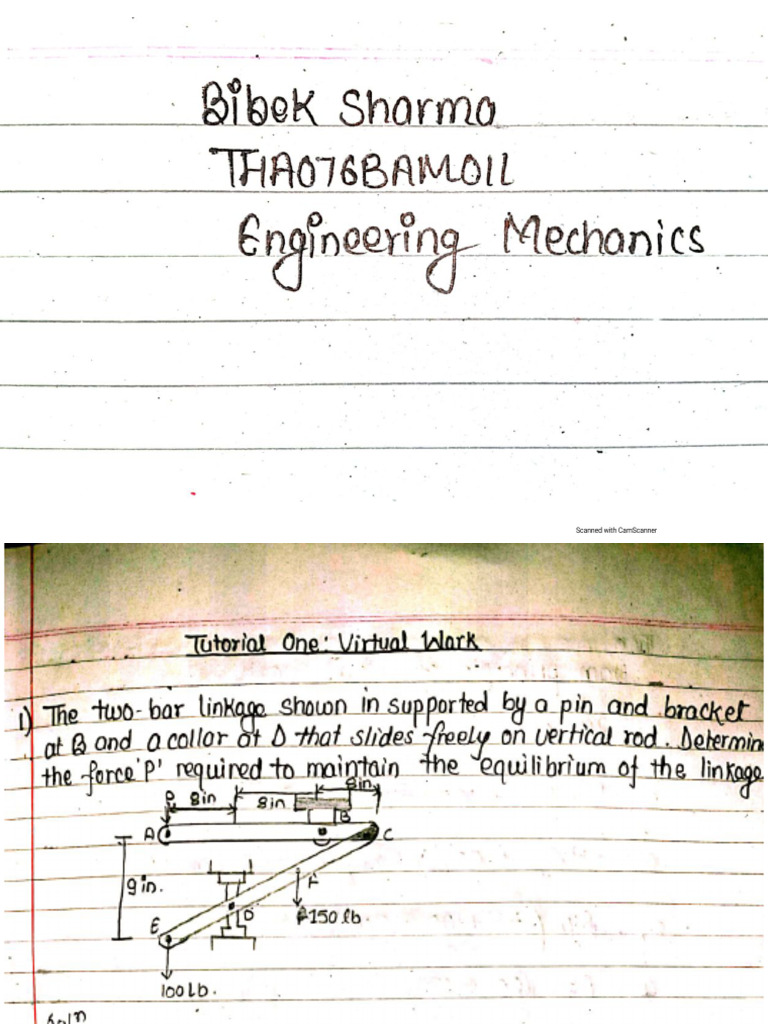 Bibek Sharma
THA076BAM011
Engineering Mechanics
Scanned with CamScanner
Tutorial One: Virtual Work
1) The two-bar linkage shown in supported by a pin and bracket
at B and a collar at D that slides freely on vertical rod. Determin
the force 'P' required to maintain the equilibrium of the linkage
8in
P 8in 8in
B
A C
9in. F
E D 150 lb.
100 lb.
Soln